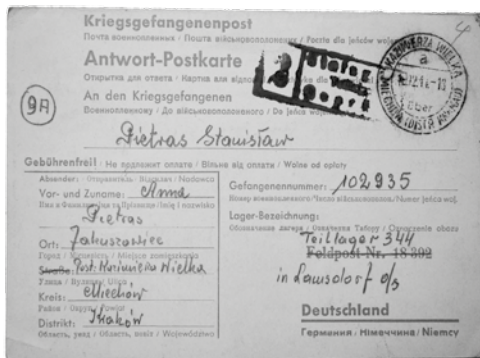 Kriegsgefangenenpost
Почта военнопленных / Пошта військовополонених / Poczta dla jeńców
Antwort-Postkarte
Открытка для ответа / Картка для
An den Kriegsgefangenen
Военнопленному / До військовополоненого / Do jeńca
KAZIMIERZA WIELKA
a
über
9A
Pietras Stanisław
Gebührenfrei! / Не подлежит оплате / Вільне від оплати / Wolne od opłaty
Absender: / Отправитель / Nadawca
Vor- und Zuname: Anna
Имя и Фамилия / Imię i nazwisko
Pietras
Ort: Jakuszowiec
Город / Miejsce zamieszkania
Straße: Post: Kazimierza Wielka
Улица / Вулиця / Ulica
Kreis: Miechów
Район / Округа / Powiat
Distrikt: Kraków
Область, рейд / Область, повіт / Województwo
Gefangenennummer: 102.935
Номер военнопленного / Число військовополоненого / Numer jeńca woj.
Lager-Bezeichnung:
Обозначение лагеря / Означення Табору / Oznaczenie obozu
Teillager 344
Feldpost-Nr. 18392
in Lamsdorf o/s
Deutschland
Германия / Німеччина / Niemcy